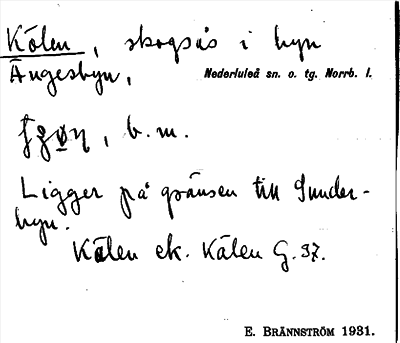 Kölen, skogsås i byn
Ängesbyn, Nederluleå sn. o. tg. Norrb. l.
b. m.
Ligger på gränsen till Sunder-
byn.
Kälen ek. Kälen G. 37.
E. BRÄNNSTRÖM 1931.